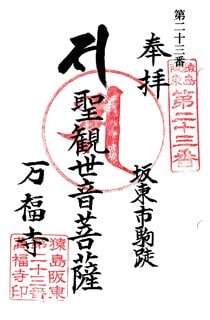 第二十三番
猿島
阪東
第二十三番
奉拝
坂東市駒跿
聖観世音菩薩
万福寺
猿島阪東
第二十三番
萬福寺印